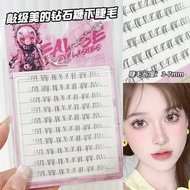 敲级美的钻石糖下睫毛
FALSE
EYELASHES
3-7mm